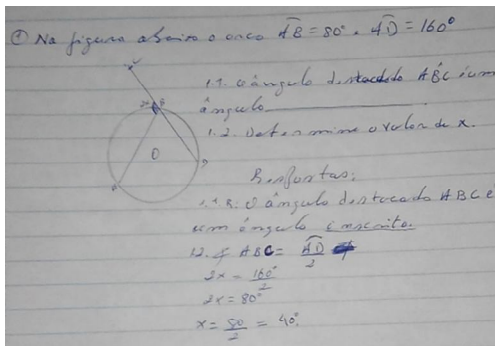 ① Na figura abaixo o arco AB = 80° e AD = 160°
1.1. O ângulo destacado ABC é um
ângulo
1.2. Determine o valor de x.
B
O
D
Respostas:
1.1 R: O ângulo destacado ABC é
um ângulo inscrito.
1.2. ∢ ABC = AD/2
2x = 160°/2
2x = 80°
x = 80/2 = 40°.